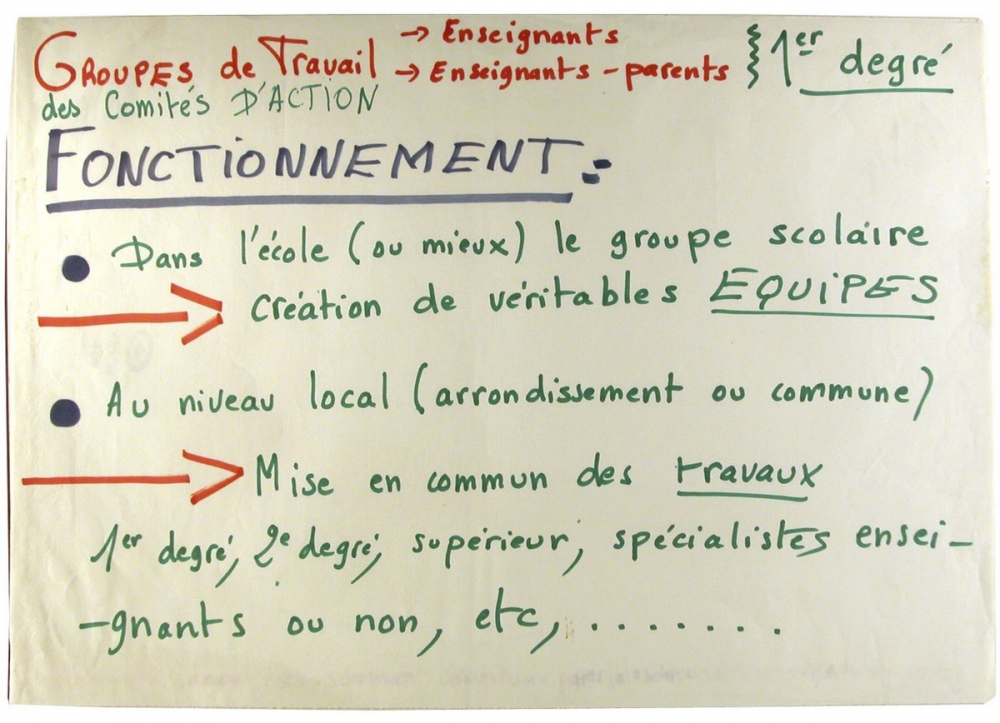 GROUPES de Travail → Enseignants
→ Enseignants - parents
1er degré
des Comités D'ACTION
FONCTIONNEMENT :
• Dans l'école (ou mieux) le groupe scolaire
→ création de véritables EQUIPES
• Au niveau local (arrondissement ou commune)
→ Mise en commun des travaux
1er degré, 2e degré, supérieur, spécialistes ensei-
-gnants ou non, etc, . . . . . . .